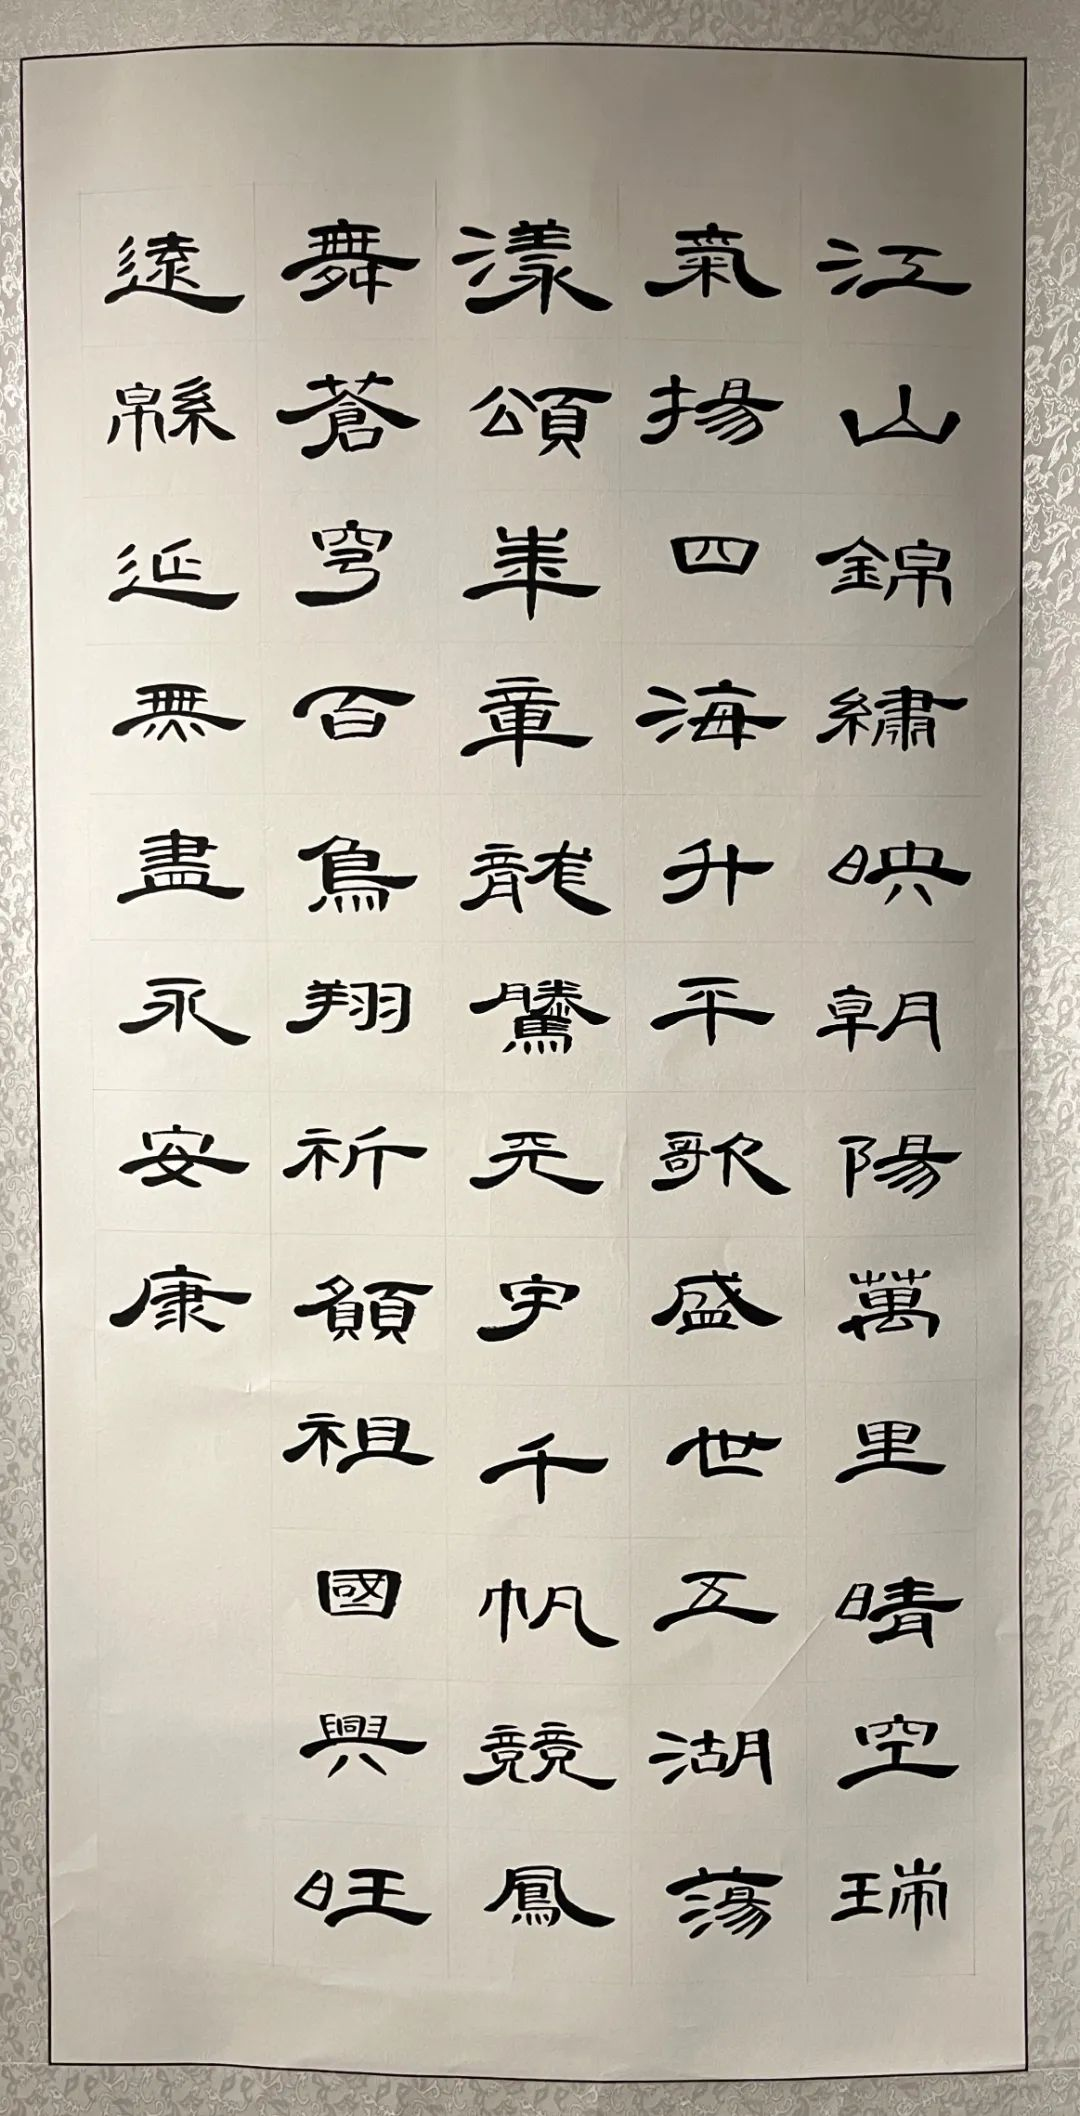 江山錦繡映朝陽萬里晴空瑞
氣揚四海升平歌盛世五湖蕩
漾頌華章龍騰天宇千帆競鳳
舞蒼穹百鳥翔祈願祖國興旺
遠緜延無盡永安康